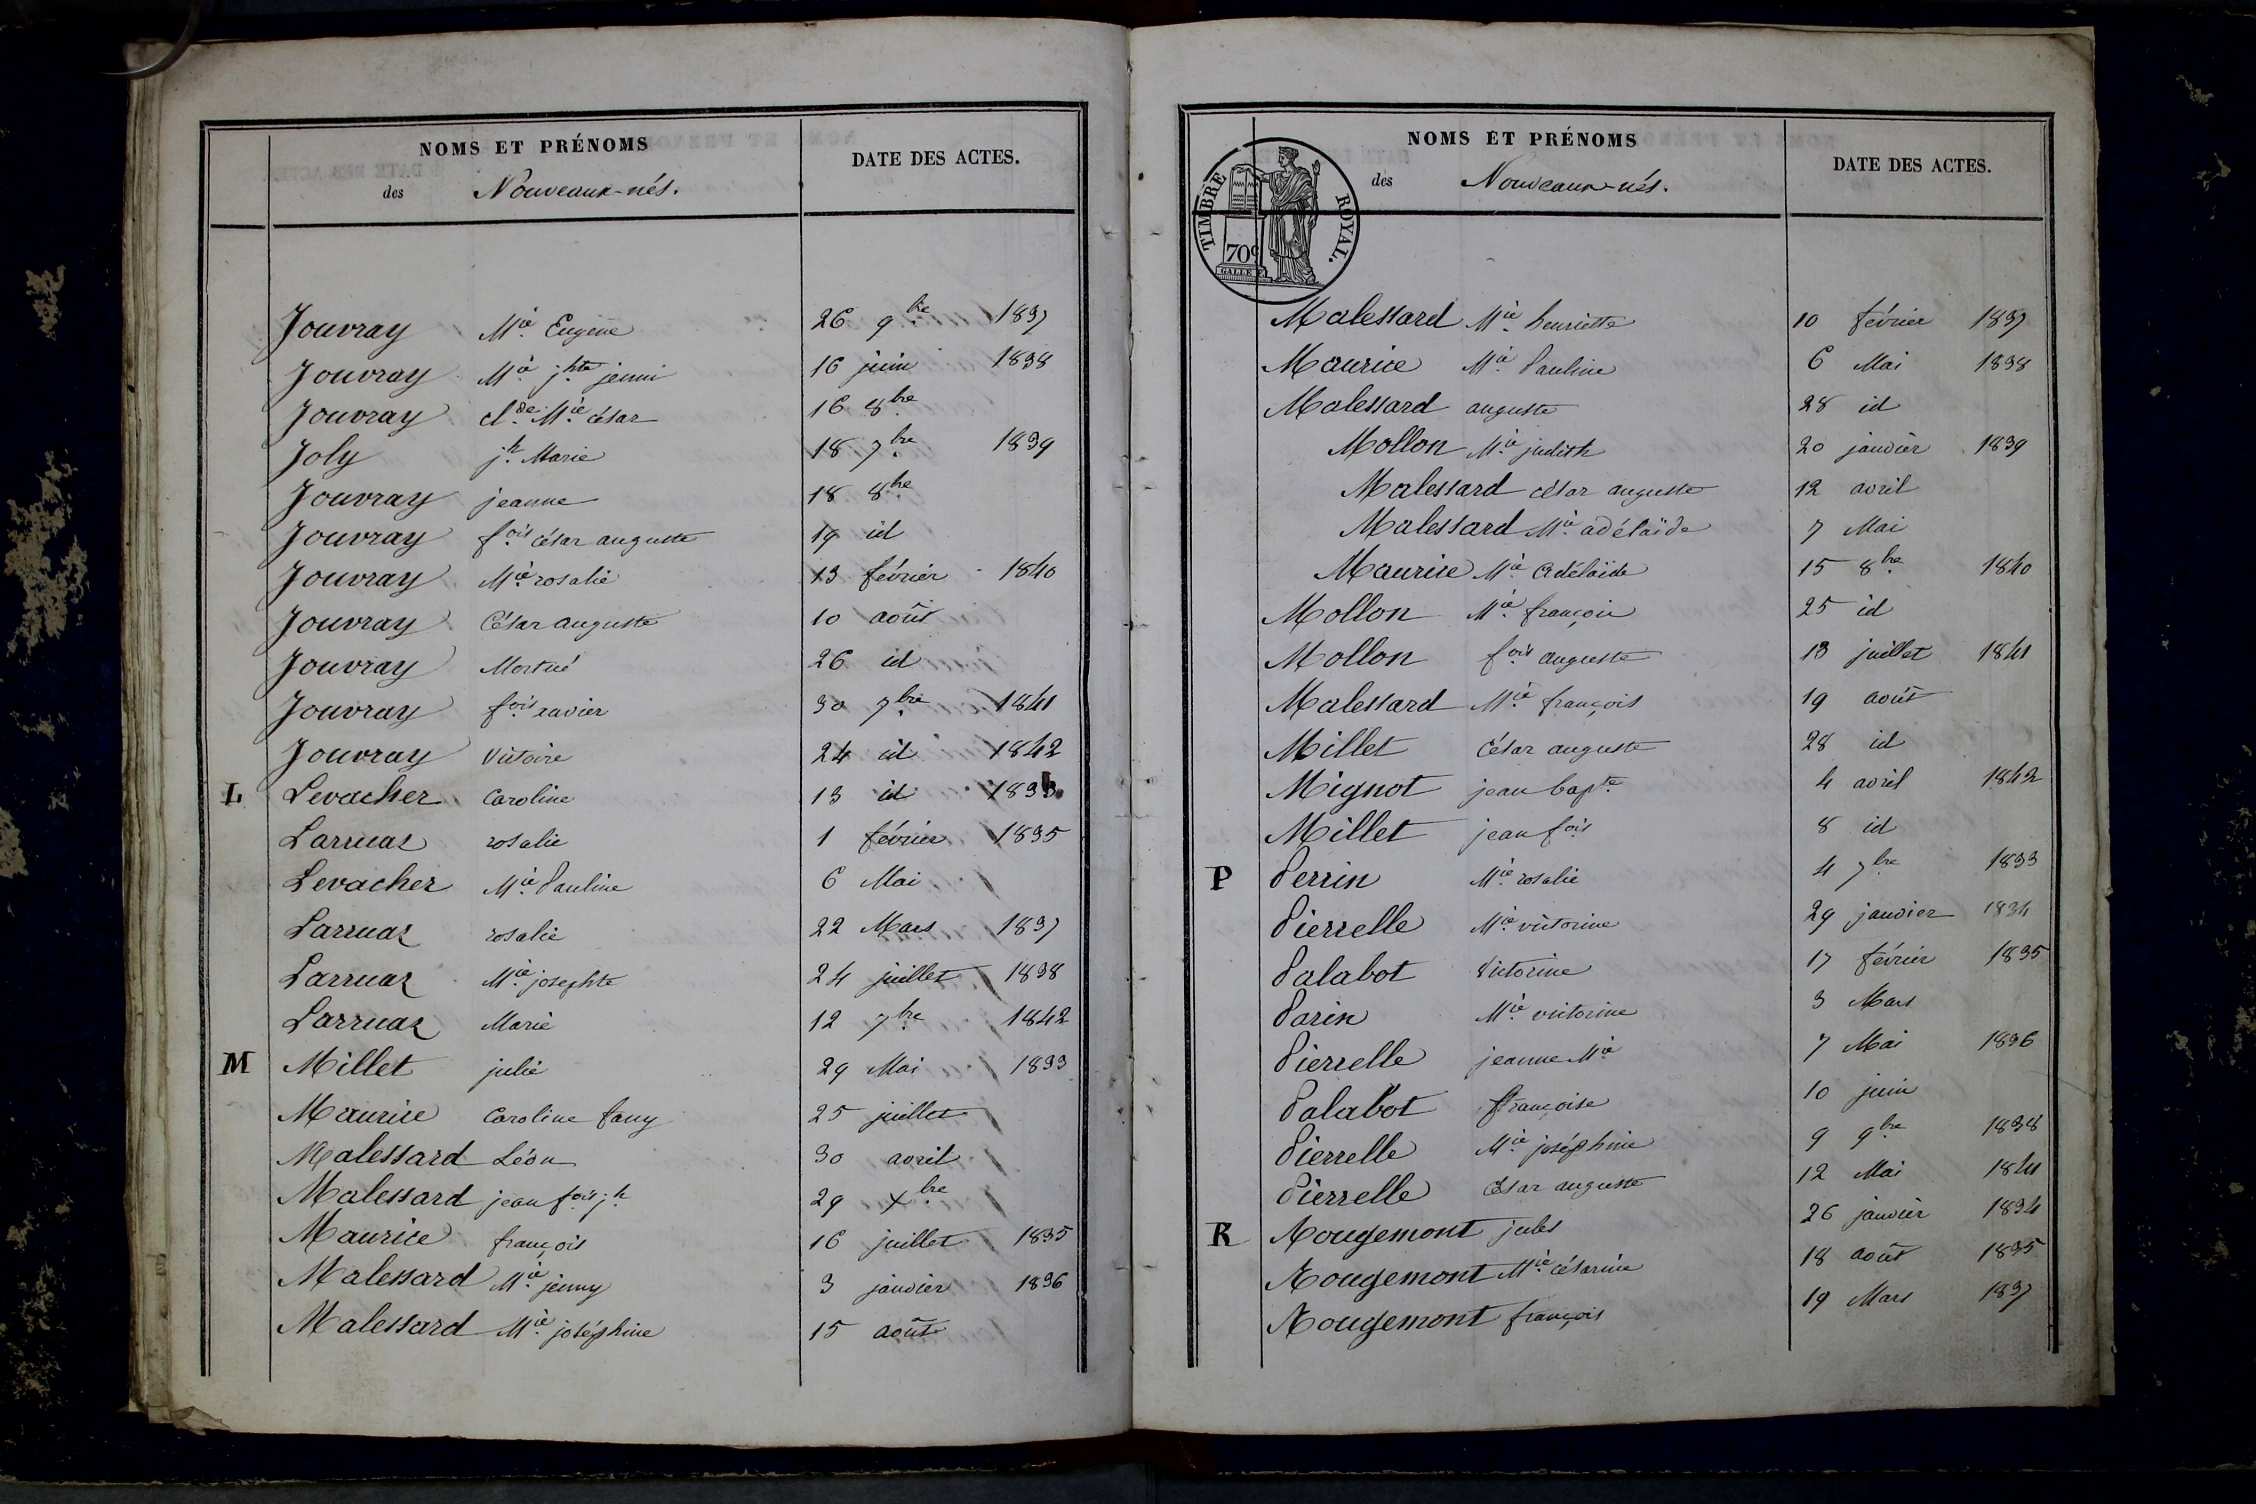 NOMS ET PRÉNOMS
des Nouveaux-nés.
DATE DES ACTES.
Jouvray Mie Eugène 26 9bre 1837
Jouvray Mie jhte jenni 16 juin 1838
Jouvray clde Mie césar 16 8bre
Joly jh Marie 18 7bre 1839
Jouvray jeanne 18 8bre
Jouvray fois césar auguste 19 id
Jouvray Mie rosalie 13 février 1840
Jouvray César auguste 10 août
Jouvray Mortné 26 id
Jouvray fois xavier 30 7bre 1841
Jouvray Victoire 24 id 1842
L Levacher Caroline 13 id
Larruaz rosalie 1 février 1835
Levacher Mie Pauline 6 Mai
Larruaz rosalie 22 Mars 1837
Larruaz Mie josephte 24 juillet 1838
Larruaz Marie 12 7bre 1842
M Millet julie 29 Mai 1833
Maurice Caroline fany 25 juillet
Malessard Léon 30 avril
Malessard jean fois jh 29 Xbre
Maurice françois 16 juillet 1835
Malessard Mie jenny 3 janvier 1836
Malessard Mie joséphine 15 août
NOMS ET PRÉNOMS
des Nouveaux-nés.
DATE DES ACTES.
TIMBRE ROYAL.
70c
Malessard Mie henriette 10 février 1837
Maurice Mie Pauline 6 Mai 1838
Malessard auguste 28 id
Mollon Mie judith 20 janvier 1839
Malessard césar auguste 12 avril
Malessard Mie adélaïde 7 Mai
Maurice Mie adélaïde 15 8bre 1840
Mollon Mie françoise 25 id
Mollon fois auguste 13 juillet 1841
Malessard Mie françois 19 août
Millet César auguste 28 id
Mignot jean bapte 4 avril 1842
Millet jean fois 8 id
P Perrin Mie rosalie 4 7bre 1833
Pierrelle Mie victorine 29 janvier 1834
Palabot Victorine 17 février 1835
Parin Mie victorine 3 Mars
Pierrelle jeanne Mie 7 Mai 1836
Palabot françoise 10 juin
Pierrelle Mie joséphine 9 9bre 1838
Pierrelle César auguste 12 Mai 1841
R Rougemont jules 26 janvier 1834
Rougemont Mie césarine 18 août 1835
Rougemont françois 19 Mars 1837